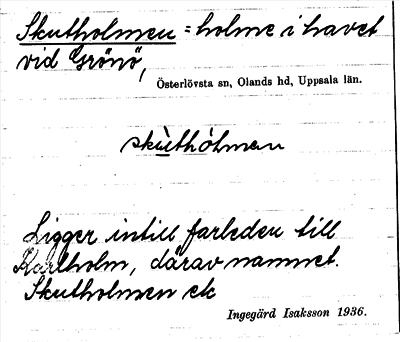 Skutholmen = holme i havet
vid Grönö,
Österlövsta sn, Olands hd, Uppsala län.
skùthólmen
Ligger intill farleden till
Karlholm, därav namnet.
Skutholmen etc
Ingegärd Isaksson 1936.